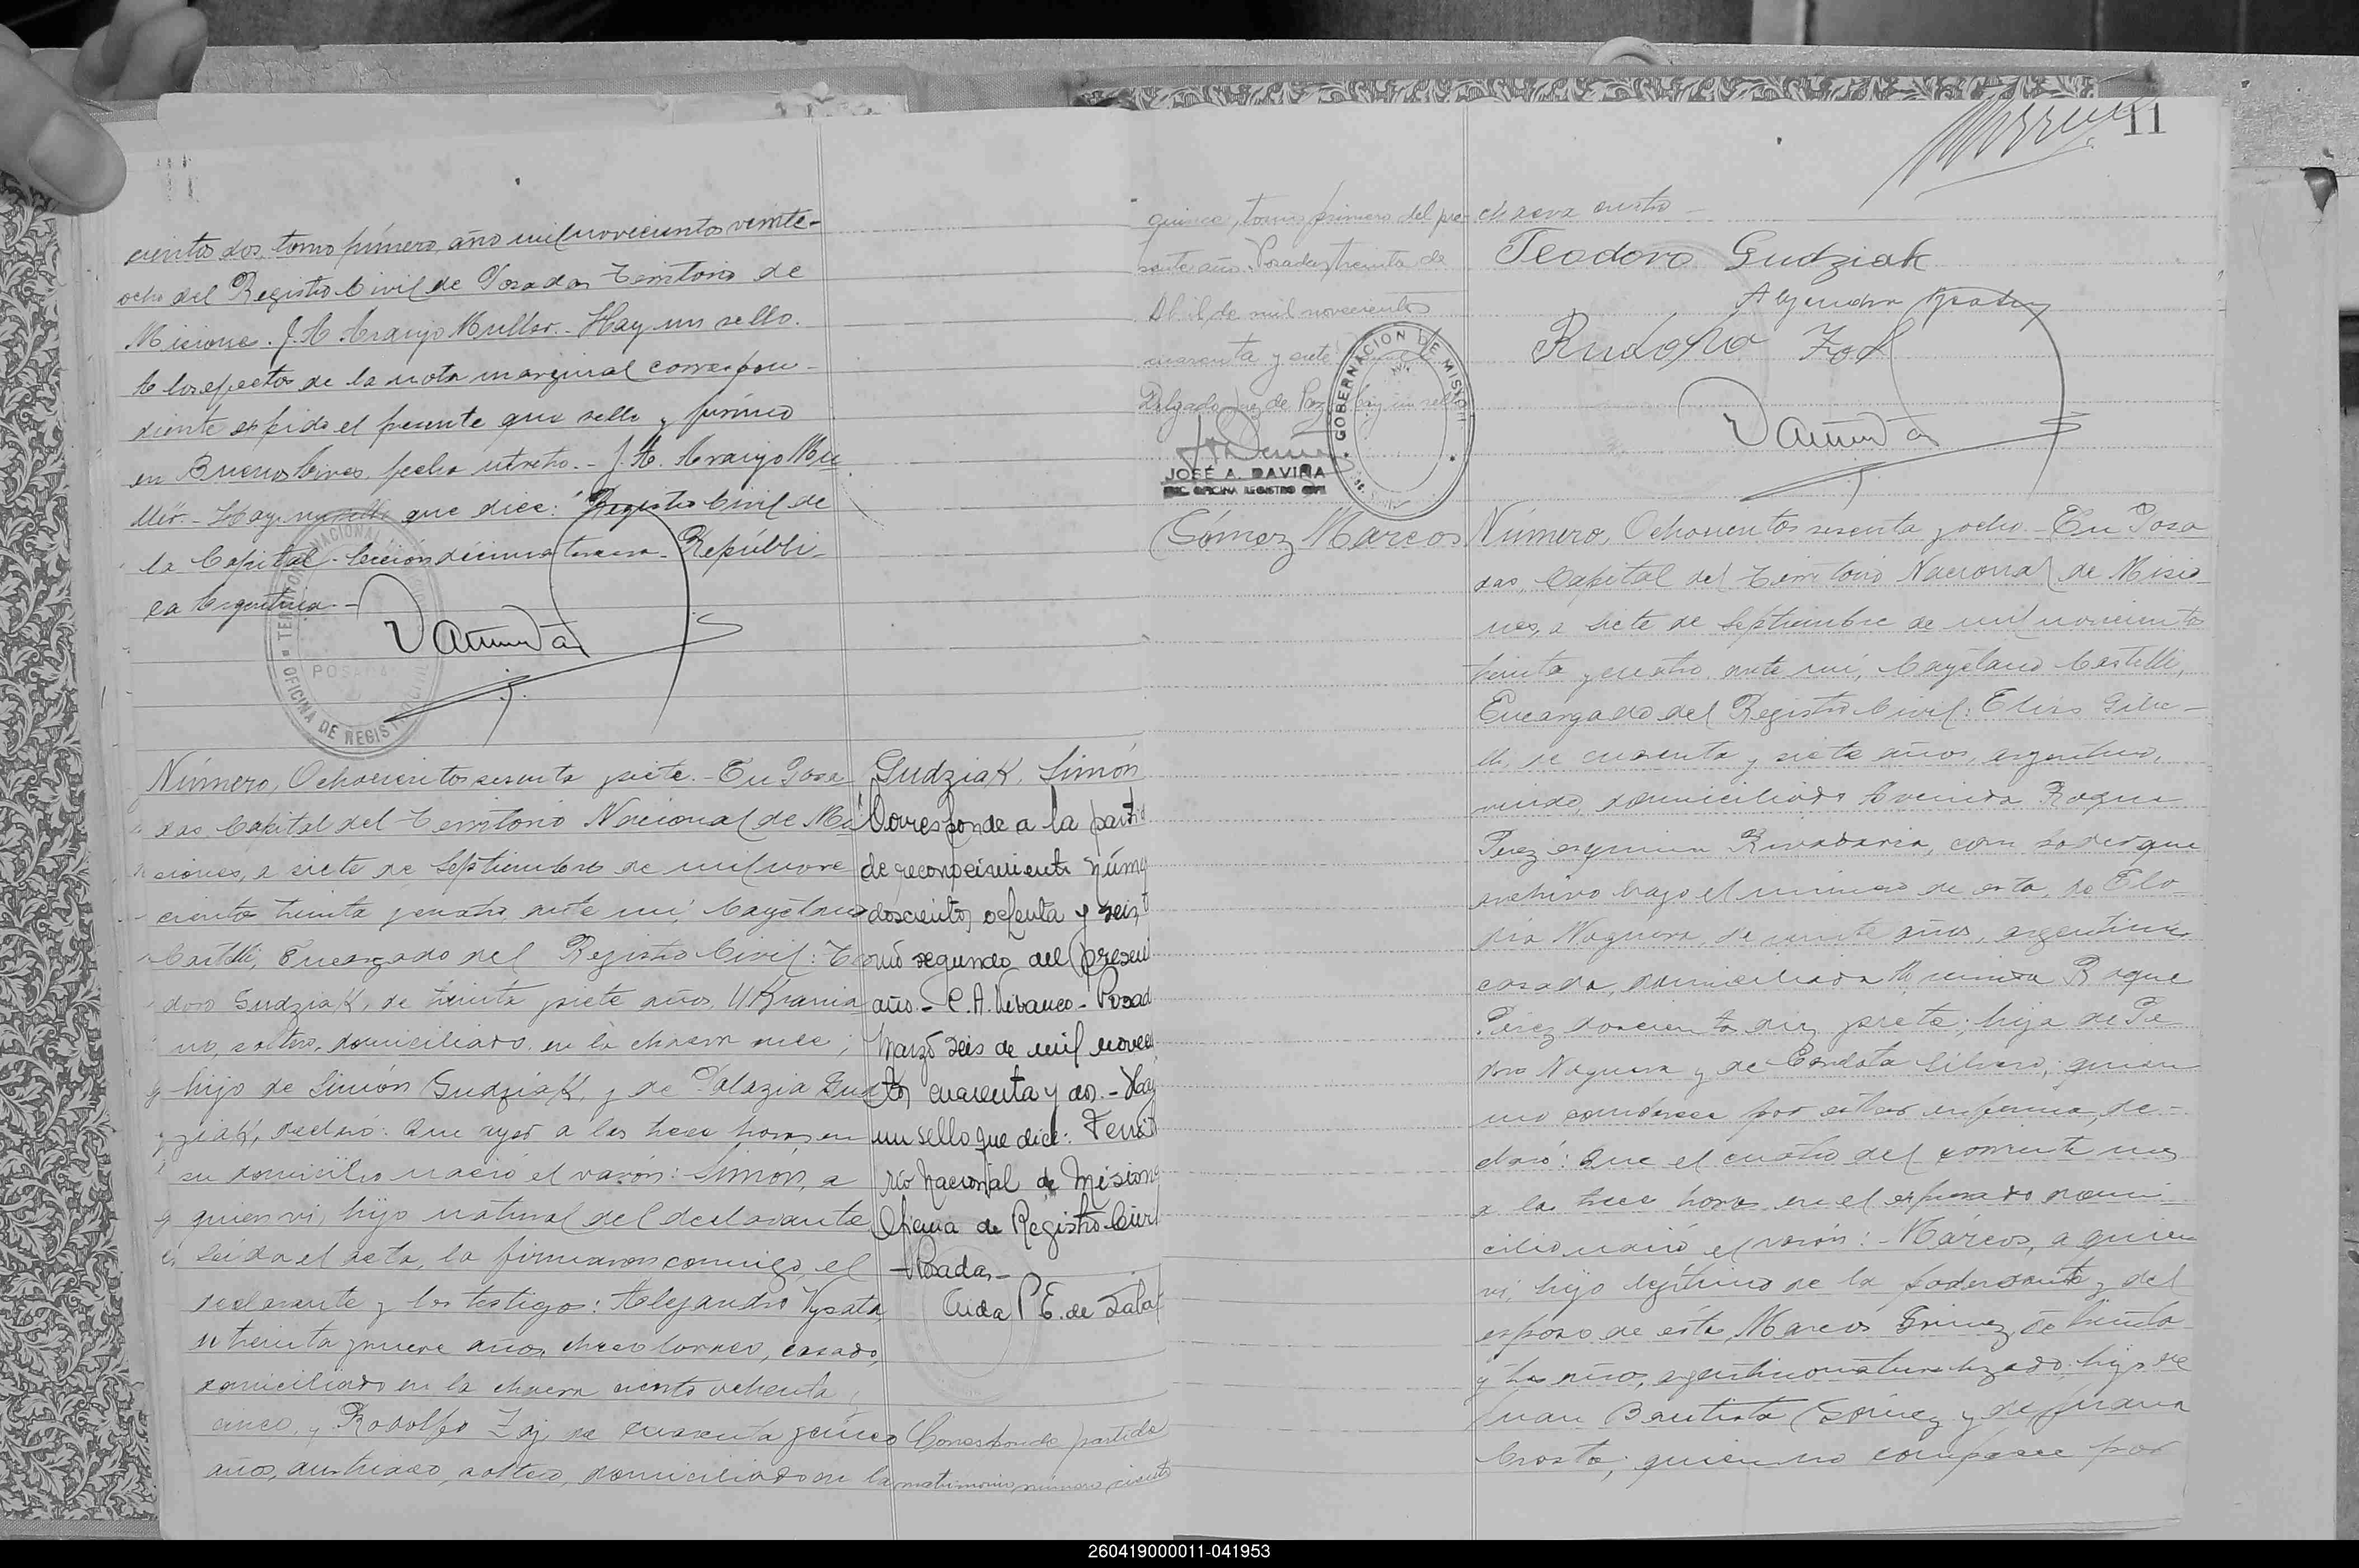 cientos dos, tomo primero, año mil novecientos veinte-
ocho del Registro Civil de Posadas Territorio de
Misiones. J. A. Araujo Muller.- Hay un sello.
A los efectos de la nota marginal correspon-
diente expido el presente que sello y firmo
en Buenos Aires, fecha utretro.- J. A. Araujo Mu
ller.- Hay un sello que dice: "Registro Civil de
la Capital. Sección décima tercera. Repúbli-
ca Argentina.-
TERRITORIO NACIONAL
POSADAS
OFICINA DE REGISTRO CIVIL
Número, Ochocientos sesenta y siete.- En Posa
das Capital del Territorio Nacional de Mi
siones, a siete de Septiembre de mil nove
cientos treinta y cuatro, ante mi, Cayetano
Castelli, Encargado del Registro Civil: Teo
doro Gudziak, de treinta y siete años, Ukrania
no, soltero, domiciliado en la chacra once;
hijo de Simón Gudziak, y de Palazia Gud
ziak, declaro: Que ayer a las trece horas en
su domicilio nació el varón: Simón, a
quien vi, hijo natural del declarante
Leída el acta, la firmaron conmigo, el
declarante y los testigos: Alejandro
de treinta y nueve años, checoslovaco, casado,
domiciliado en la chacra ciento ochenta
cinco, y Rodolfo Zoj, de cuarenta y cinco
años, austriaco, soltero, domiciliado en la
Gudziak, Simón
Corresponde a la partid
de reconocimiento núme
doscientos ochenta y seis, t
omo segundo del presen
año.- C. A. Vibanco - Posad
Marzo seis de mil novec
tos cuarenta y dos.- Hay
un sello que dice: Territ
rio Nacional de Mision
Oficina de Registro Civil
-Posadas-
Aida P. E. de
Corresponde partida
matrimonio, número ciento
11
quince, tomo primero del pre-
sente año. Posadas, treinta de
Abril de mil novecientos
cuarenta y siete
Delgado Juez de Paz. Hay un sello
GOBERNACION DE MISIONES
JOSÉ A. DAVIÑA
ENC. OFICINA REGISTRO CIVIL
chacra cuatro-
Teodoro Gudziak
Rudolfo Zoj
Gómez Marcos
Número, Ochocientos sesenta y ocho.- En Posa
das, Capital del Territorio Nacional de Misio-
nes, a siete de Septiembre de mil novecientos
treinta y cuatro, ante mi, Cayetano Castelli,
Encargado del Registro Civil: Elias
de cuarenta y siete años, argentino,
viudo, domiciliado Avenida Roque
Perez esquina Rivadavia, con poder que
archivo bajo el número de esta, de Elo-
dia Noguera, de veinte años, argentina
casada, domiciliada Avenida Roque
Pérez doscientos diez y siete; hija de Pe
dro Noguera y de Candota Silvero; quien
no comparece por estar enferma, de-
claró: Que el cuatro del corriente mes
a las trece horas en el expresado domi-
cilio nació el varón: Marcos, a quien
vi, hijo legítimo de la poderdante y del
esposo de ésta, Marcos Gómez, de treinta
y tres años, argentino naturalizado, hijo de
Juan Bautista Gómez y de Juana
Costa; quien no comparece por
260419000011-041953